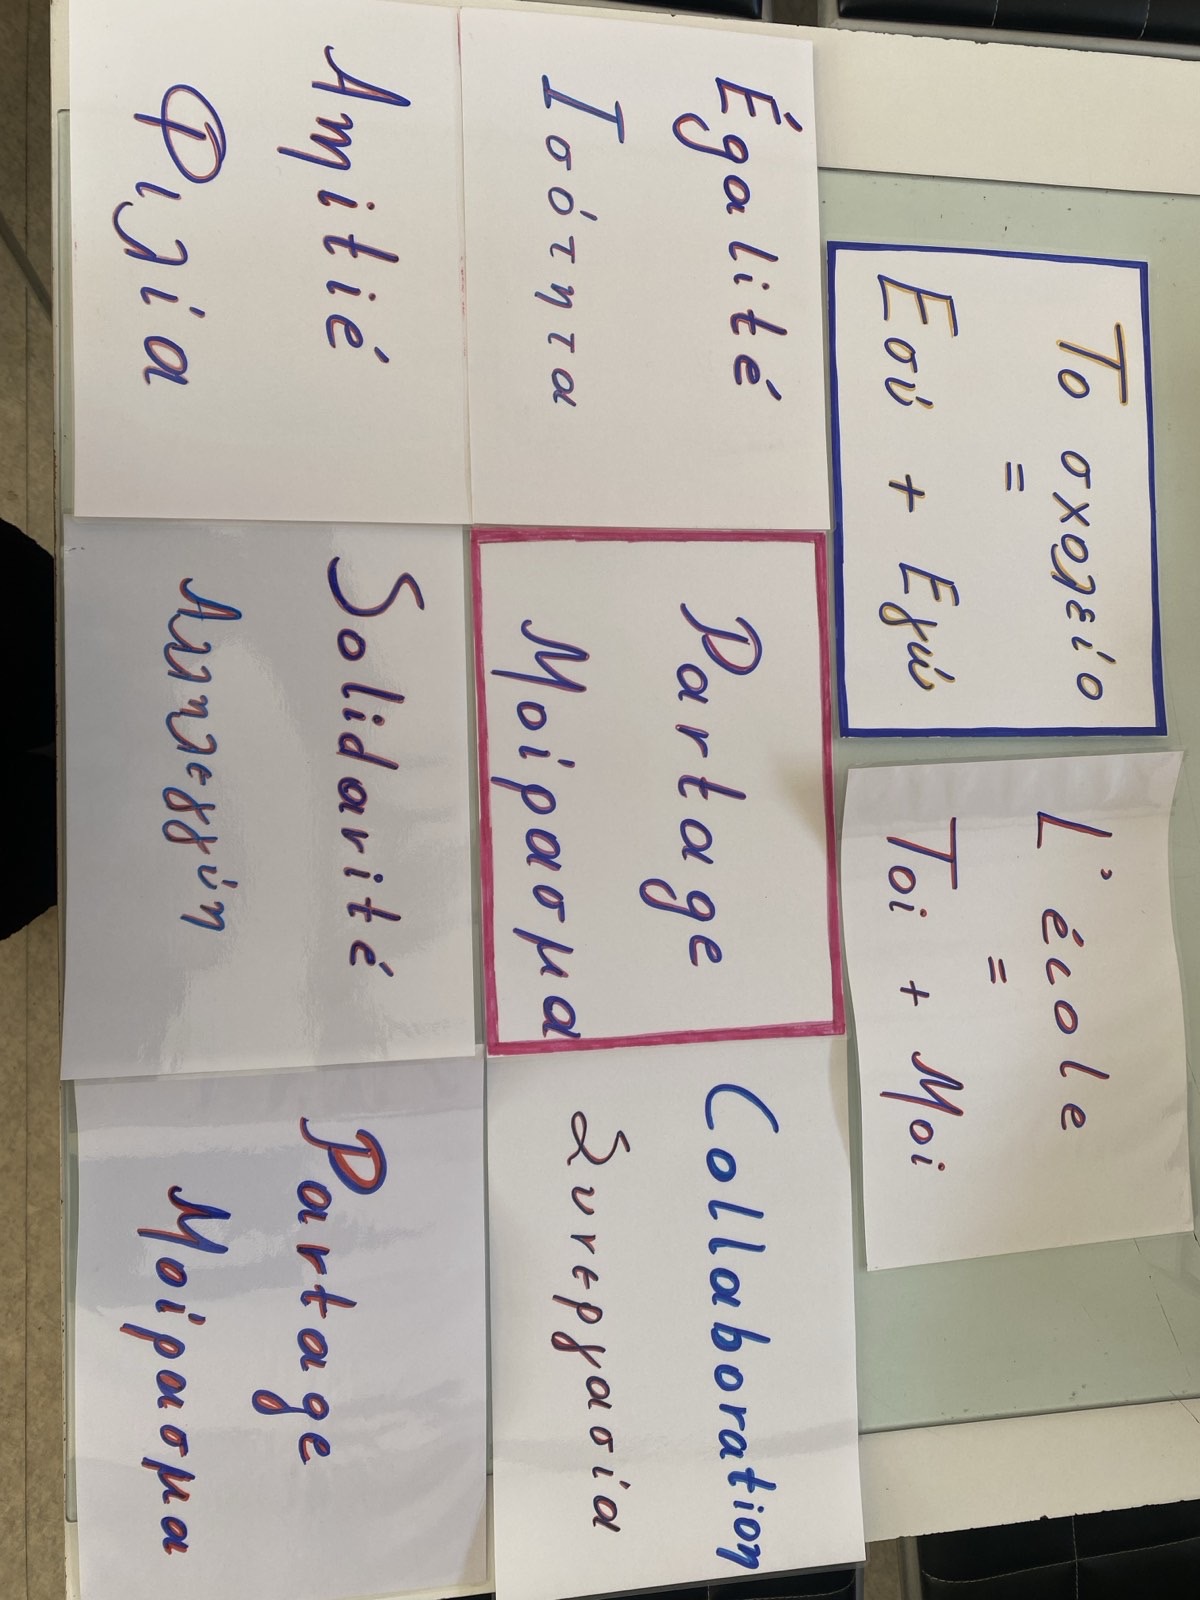 Το σχολείο
=
Εσύ + Εγώ
L'école
=
Toi + Moi
Égalité
Ισότητα
Partage
Μοίρασμα
Collaboration
Συνεργασία
Amitié
Φιλία
Solidarité
Αλληλεγγύη
Partage
Μοίρασμα